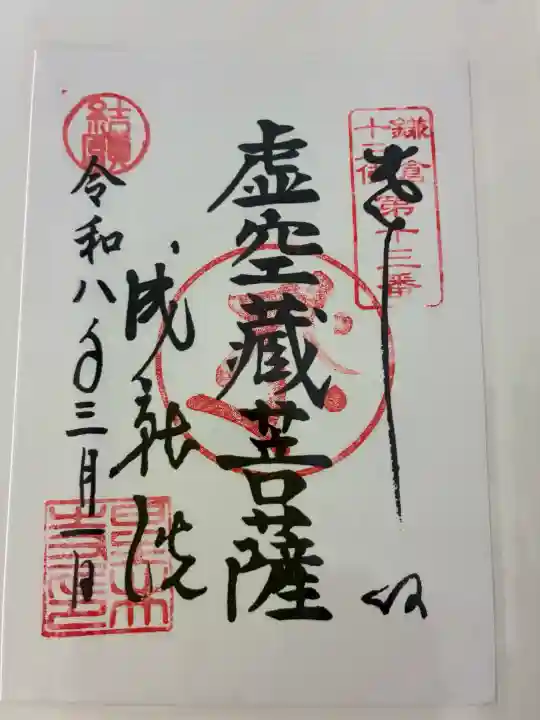 鎌倉
十三佛第十三番
奉拝
虚空蔵菩薩
成就院
結願
令和八年三月一日